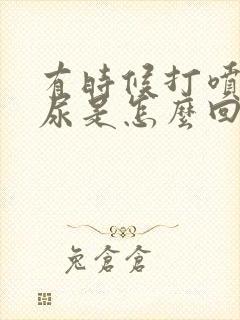 有時候打噴
尿是怎麼回
兔倉倉